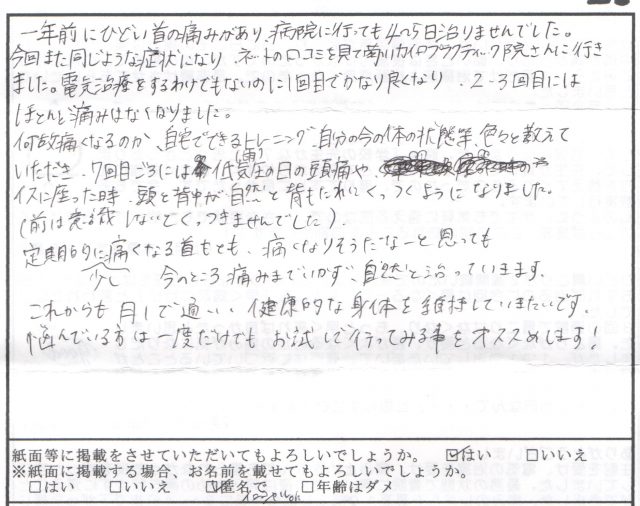 一年前にひどい首の痛みがあり、病院に行っても4～5日治りませんでした。
今回また同じような症状になり、ネットの口コミを見て菊川カイロプラクティック院さんに行き
ました。電気治療をするわけでもないのに1回目でかなり良くなり、2-3回目には
ほとんど痛みはなくなりました。
何故痛くなるのか、自宅でできるトレーニング、自分の今の体の状態等、色々と教えて
いただき、7回目ごろには低気圧(雨)の日の頭痛や、
イスに座った時、頭と背中が自然と背もたれにくっつくようになりました。
(前は意識しないとくっつきませんでした)。
定期的に少し痛くなる首もとも、痛くなりそうだなーと思っても
今のところ痛みまでいかず、自然と治っていきます。
これからも月1で通い、健康的な身体を維持していきたいです。
悩んでいる方は一度だけでもお試しで行ってみる事をオススメします!
紙面等に掲載をさせていただいてもよろしいでしょうか。 ☑はい □いいえ
※紙面に掲載する場合、お名前を載せてもよろしいでしょうか。
□はい □いいえ ☑匿名で □年齢はダメ
イニシャルok